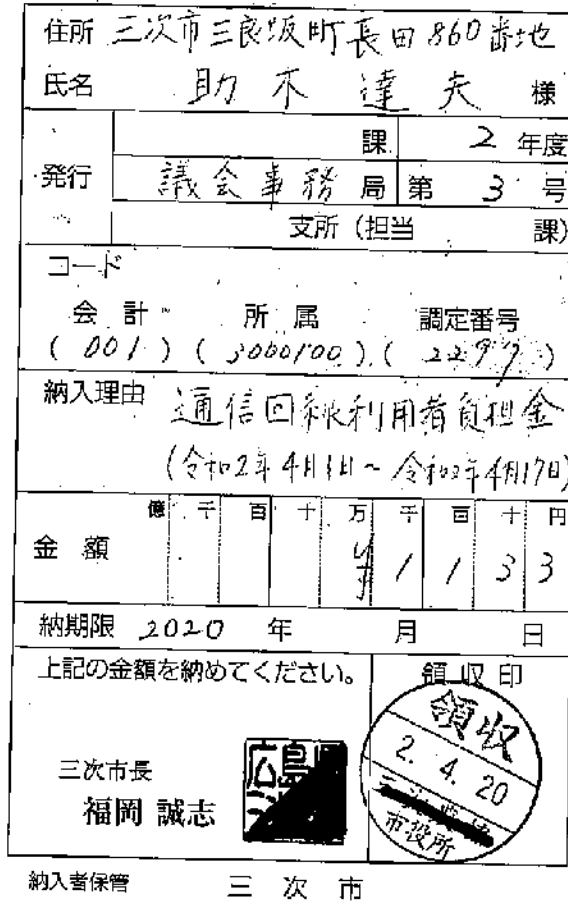 住所 三次市三良坂町長田860番地
氏名 助木達夫 様
課 2 年度
発行 議会事務局 第 3 号
支所(担当 課)
コード
会計 所属 調定番号
(001)(3000100)(2299)
納入理由 通信回線利用者負担金
(令和2年4月1日~令和2年4月17日)
億 千 百 十 万 千 百 十 円
金額 1 1 3 3
納期限 2020 年 月 日
上記の金額を納めてください。 領収印
領収
2. 4. 20
市役所
三次市長
福岡 誠志
広島県
納入者保管 三次市